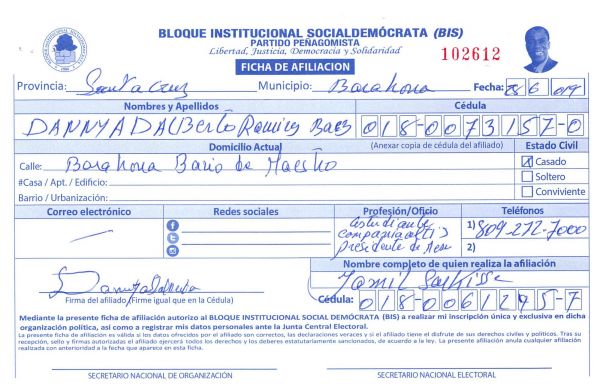 BLOQUE INSTITUCIONAL SOCIALDEMÓCRATA (BIS)
PARTIDO PEÑAGOMISTA
Libertad, Justicia, Democracia y Solidaridad
102612
FICHA DE AFILIACION
Provincia: Santa Cruz Municipio: Barahona Fecha: 6 019
Nombres y Apellidos Cédula
DANNY ADALBerto Ramirez Baez 018-0073157-0
Domicilio Actual (Anexar copia de cédula del afiliado) Estado Civil
Calle: Barahona Bario de Maestro
Casado
#Casa / Apt. / Edificio: Soltero
Barrio / Urbanización: Conviviente
Correo electrónico Redes sociales Profesión/Oficio Teléfonos
estudiante
1) 809 272-7000
presidente de
2)
Nombre completo de quien realiza la afiliación
Yamil
Firma del afiliado (Firme igual que en la Cédula) Cédula: 018-0061245-7
Mediante la presente ficha de afiliación autorizo al BLOQUE INSTITUCIONAL SOCIAL DEMÓCRATA (BIS) a realizar mi inscripción única y exclusiva en dicha
organización política, así como a registrar mis datos personales ante la Junta Central Electoral.
La presente ficha de afiliación es válida si los datos ofrecidos por el afiliado son correctos, las declaraciones veraces y si el afiliado tiene el disfrute de sus derechos civiles y políticos. Tras su
recepción, sello y firmas autorizadas el afiliado ejercerá todos los derechos y los deberes estatutariamente sancionados, de acuerdo a la ley. La presente afiliación anula cualquier afiliación
realizada con anterioridad a la fecha que aparece en esta ficha.
SECRETARIO NACIONAL DE ORGANIZACIÓN SECRETARIO NACIONAL ELECTORAL